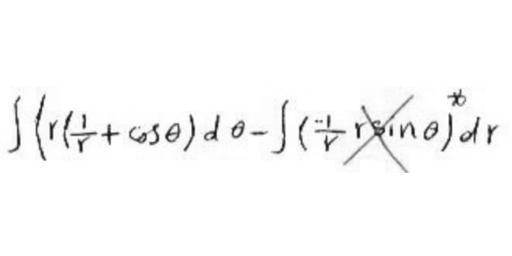 ∫(r(1/r + cosθ)dθ - ∫(-1/r r sinθ)dr